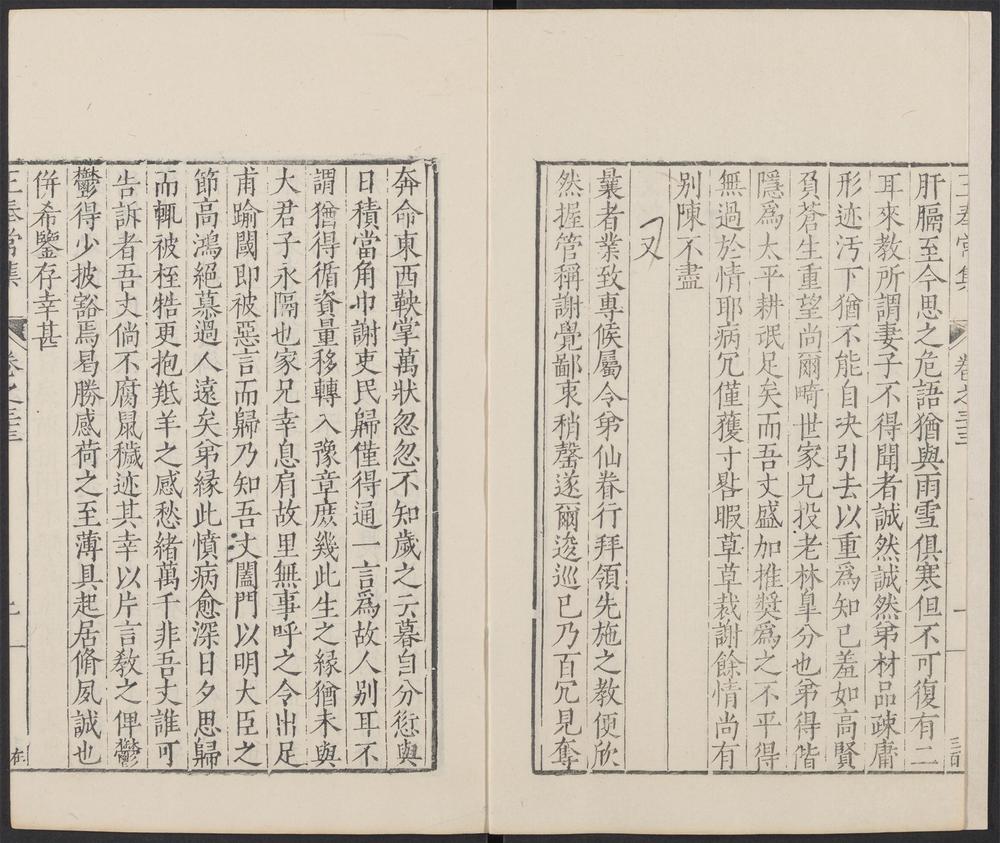 王奉常集
卷之三十三
肝膈至今思之危語猶與雨雪俱寒但不可復有二
耳來教所謂妻子不得聞者誠然誠然弟材品疎庸
形迹汚下猶不能自决引去以重為知已羞如高賢
負蒼生重望尚爾畸世家兄投老林皐分也弟得偕
隱爲太平耕氓足矣而吾丈盛加推奬爲之不平得
無過於情耶病冗僅獲寸晷暇草草裁謝餘情尚有
別陳不盡
又
曩者業致專候屬令弟仙眷行拜領先施之教便欣
然握管稱謝覺鄙衷稍罄遂爾逡巡已乃百冗見奪
奔命東西鞅掌萬狀忽忽不知歲之云暮自分愆與
日積當角巾謝吏民歸僅得通一言爲故人別耳不
謂猶得循資量移轉入豫章庶幾此生之緣猶未與
大君子永隔也家兄幸息肩故里無事呼之令出足
甫踰閾即被惡言而歸乃知吾丈闔門以明大臣之
節高鴻絕慕過人遠矣弟緣此憤病愈深日夕思歸
而輒被桎牿更抱羝羊之感愁緒萬千非吾丈誰可
告訴者吾丈倘不腐鼠穢迹其幸以片言敎之俾鬱
鬱得少披豁焉曷勝感荷之至薄具起居脩夙誠也
併希鑒存幸甚
王奉常集
卷之三十三